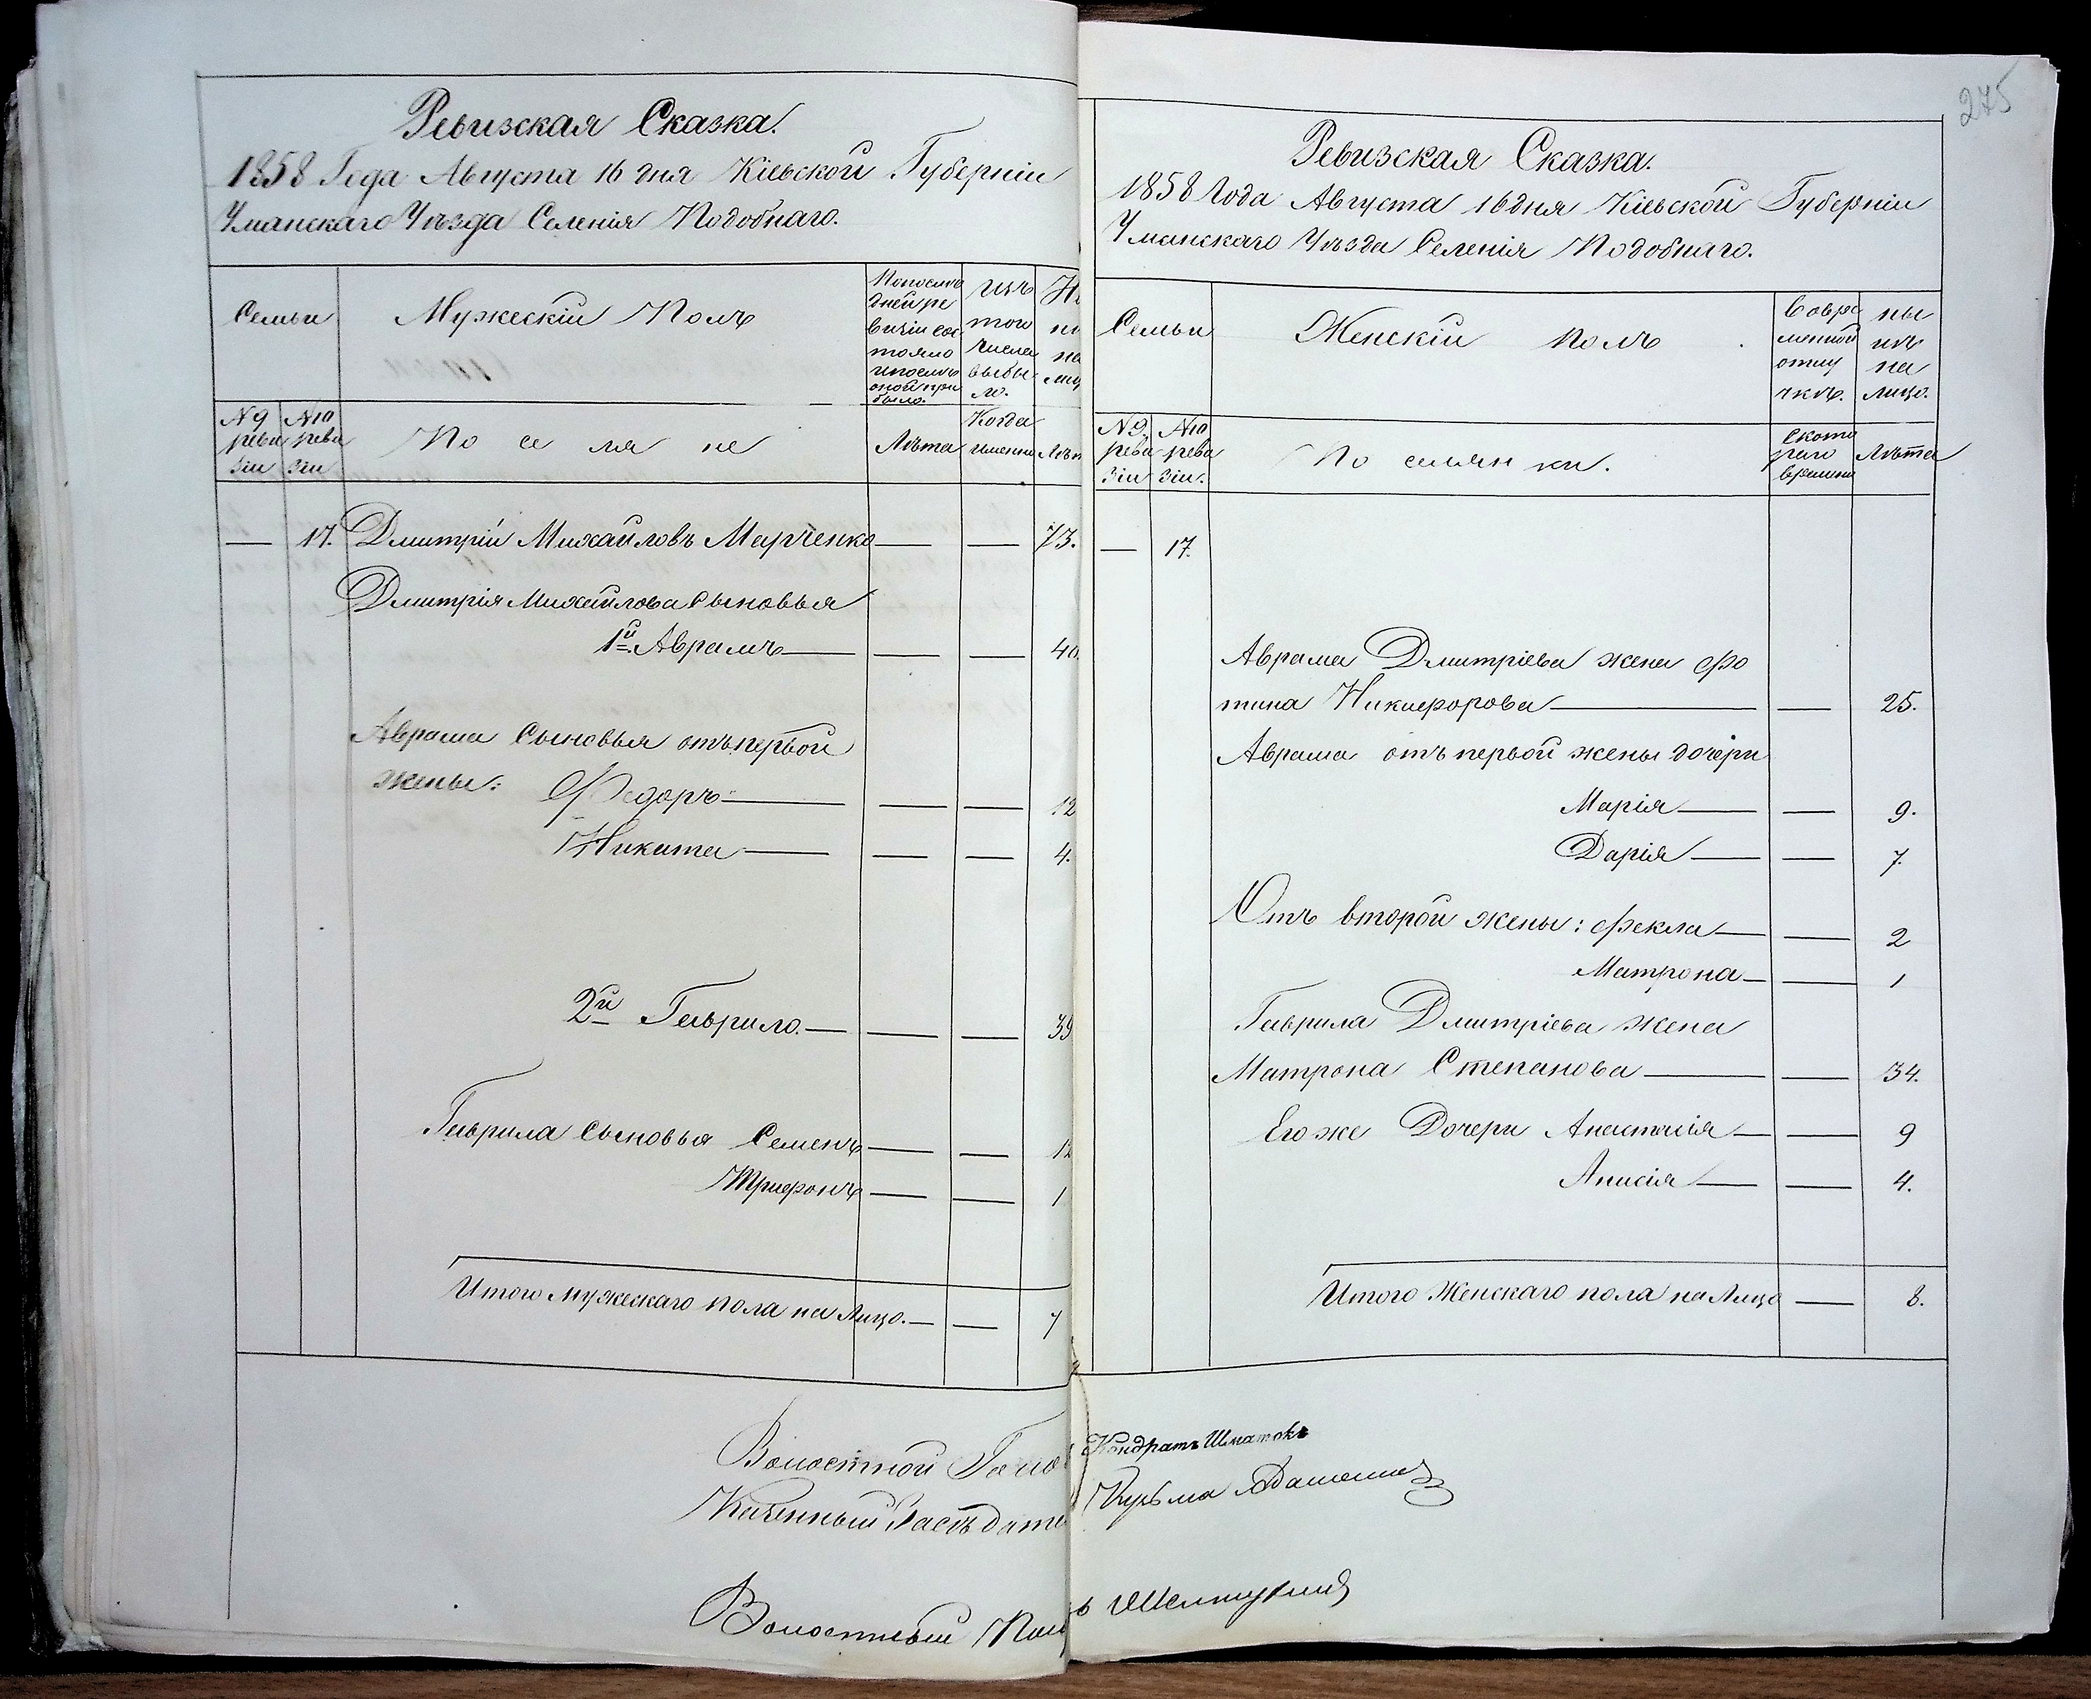 Ревизская Сказка.
1858 Года Августа 16 дня Кіевской Губерніи
Уманскаго Уѣзда Селенія Подобнаго.
Семьи
Мужескій Полъ
По послѣд
ней ре
визіи сос
тояло
и послѣ
оной при
было.
изъ
того
числа
выбы-
ло.
№ 9
реви
зіи
№ 10
реви
зіи
По се ля не
Лѣта
Когда
именно
17. Дмитрій Михайловъ Марченко 73.
Дмитрія Михайлова Сыновья
1й Аврамъ 40.
Аврама Сыновья отъ первой
жены: Федоръ 12
Никита 4.
2й Гаврило. 39
Гаврила Сыновья Семенъ 12
Трифонъ 1
Итого мужескаго пола на Лицо. 7
Волостной Голов
Казенный Засѣдате
Волостный
275
Ревизская Сказка.
1858 Года Августа 16 дня Кіевской Губерніи
Уманскаго Уѣзда Селенія Подобнаго.
Семьи
Женскій Полъ
Во вре
менной
отлу
чкѣ.
ны
нѣ
на
лицо.
№ 9.
реви
зіи
№ 10
реви
зіи.
По селян ки.
С кото
раго
времени
Лѣта
17.
Аврама Дмитріева жена Фо
тина Никифорова 25.
Аврама отъ первой жены дочери
Марія 9.
Дарія 7.
Отъ второй жены: Фекла 2
Матрона 1
Гаврила Дмитріева жена
Матрона Степанова 34.
Его же Дочери Анастасія 9
Анисія 4.
Итого Женскаго пола на Лицо 8.
Кондратъ Шматокъ
Кузьма